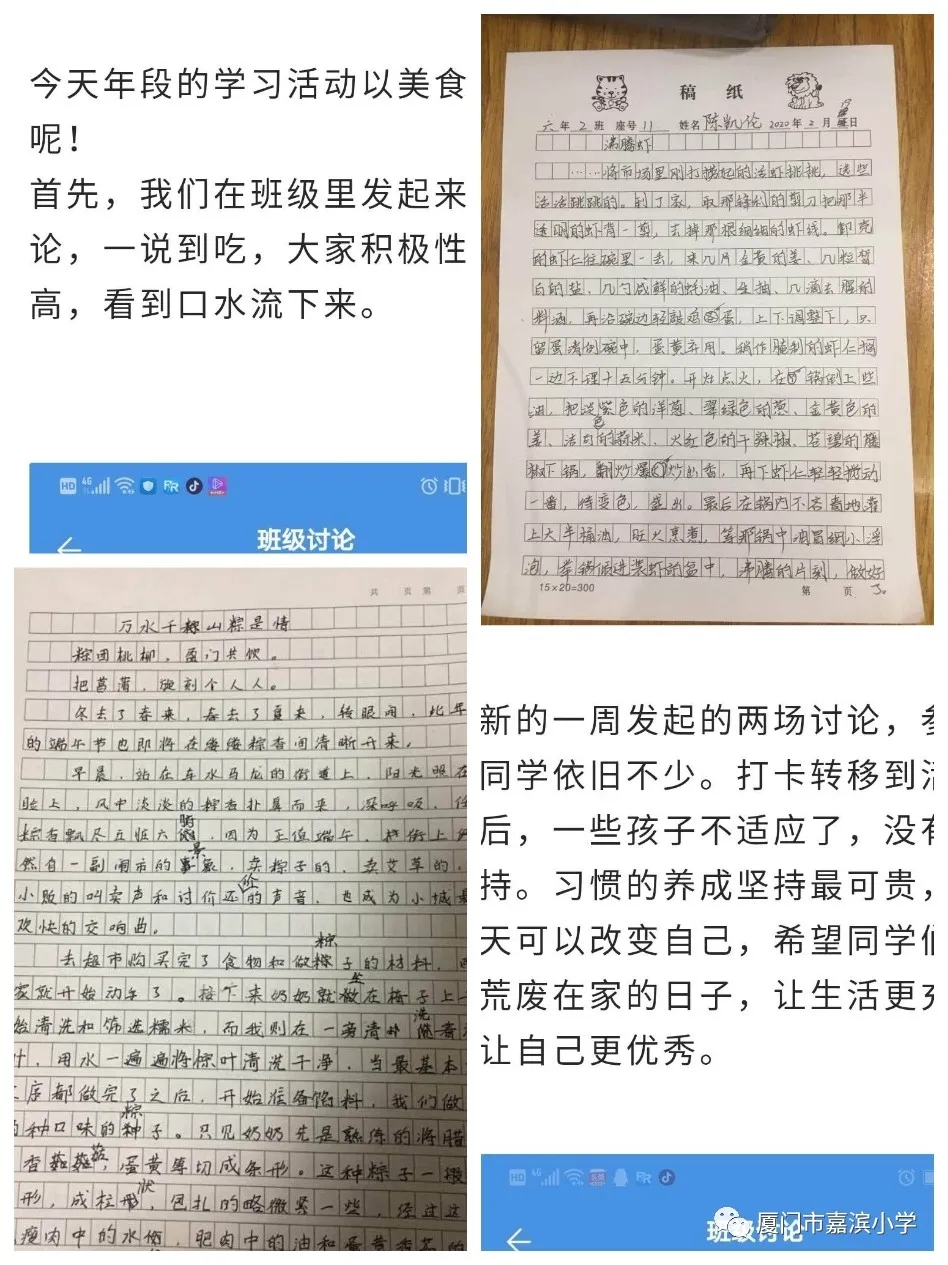 今天年段的学习活动以美食
呢！
首先，我们在班级里发起来
论，一说到吃，大家积极性
高，看到口水流下来。
HD 4G
班级讨论
共 页 第 页
万水千粽山粽是情
粽团桃柳，盈门共饮。
把菖蒲，旋刻个人人。
冬去了春来，春去了夏来，转眼间，此年
的端午节也即将在缕缕粽香间清晰开来。
早晨，站在车水马龙的街道上，阳光照在
脸上，风中淡淡的粽香扑鼻而来，深呼吸，任
粽香飘尽五脏六腑，因为正值端午，桥街上
然有一副闹市的景象，卖粽子的，卖艾草的，
小贩的叫卖声和讨价还价的声音，也成为小城最
欢快的交响曲。
去超市购买完了食物和做粽子的材料，
家就开始动手了。接下来奶奶就坐在椅子上一
始清洗和筛选糯米，而我则在一旁清洗
叶，用水一遍遍将粽叶清洗干净，当最基本
序都做完了之后，开始准备馅料，我们做
种口味的粽子。只见奶奶先是熟练的将腊
香菇，蛋黄等切成条形。这种粽子一般
形，成柱形状，包扎的略微紧一些，经过这
瘦肉中的水，肥肉中的油和蛋黄
稿 纸
六年2班 座号11 姓名陈凯伦 2020年2月 日
沸腾虾
……将市场里刚打捞起的活虾挑挑，选些
活活跳跳的。到了家，取那锋利的剪刀把那半
透明的虾背一剪，去掉那根细细的虾线。卸壳
的虾仁往碗里一丢，来几片金黄的姜、几粒皙
白的盐、几勺咸鲜的蚝油、生抽、几滴去腥的
料酒，再沿碗边轻敲鸡蛋，上下调整下，只
留蛋清倒碗中，蛋黄弃用。稍作腌制的虾仁搁
一边不理十五分钟。开灶点火，在锅倒上些
油，把淡紫色的洋葱、翠绿色的葱、金黄色的
姜、洁白的蒜米、火红色的干辣椒、苍碧的藤
椒下锅，翻炒爆炒出香，再下虾仁轻轻搅动
一番，待变色，盛出。最后在锅内不吝啬地灌
上大半桶油，旺火烹煮，等那锅中油冒细小浮
泡，举锅倾进装虾的盆中，沸腾的片刻，做好
了。
15×20=300
第 页
新的一周发起的两场讨论，参
同学依旧不少。打卡转移到活
后，一些孩子不适应了，没有
持。习惯的养成坚持最可贵，
天可以改变自己，希望同学们
荒废在家的日子，让生活更充
让自己更优秀。
HD 4G
班级讨论
厦门市嘉滨小学